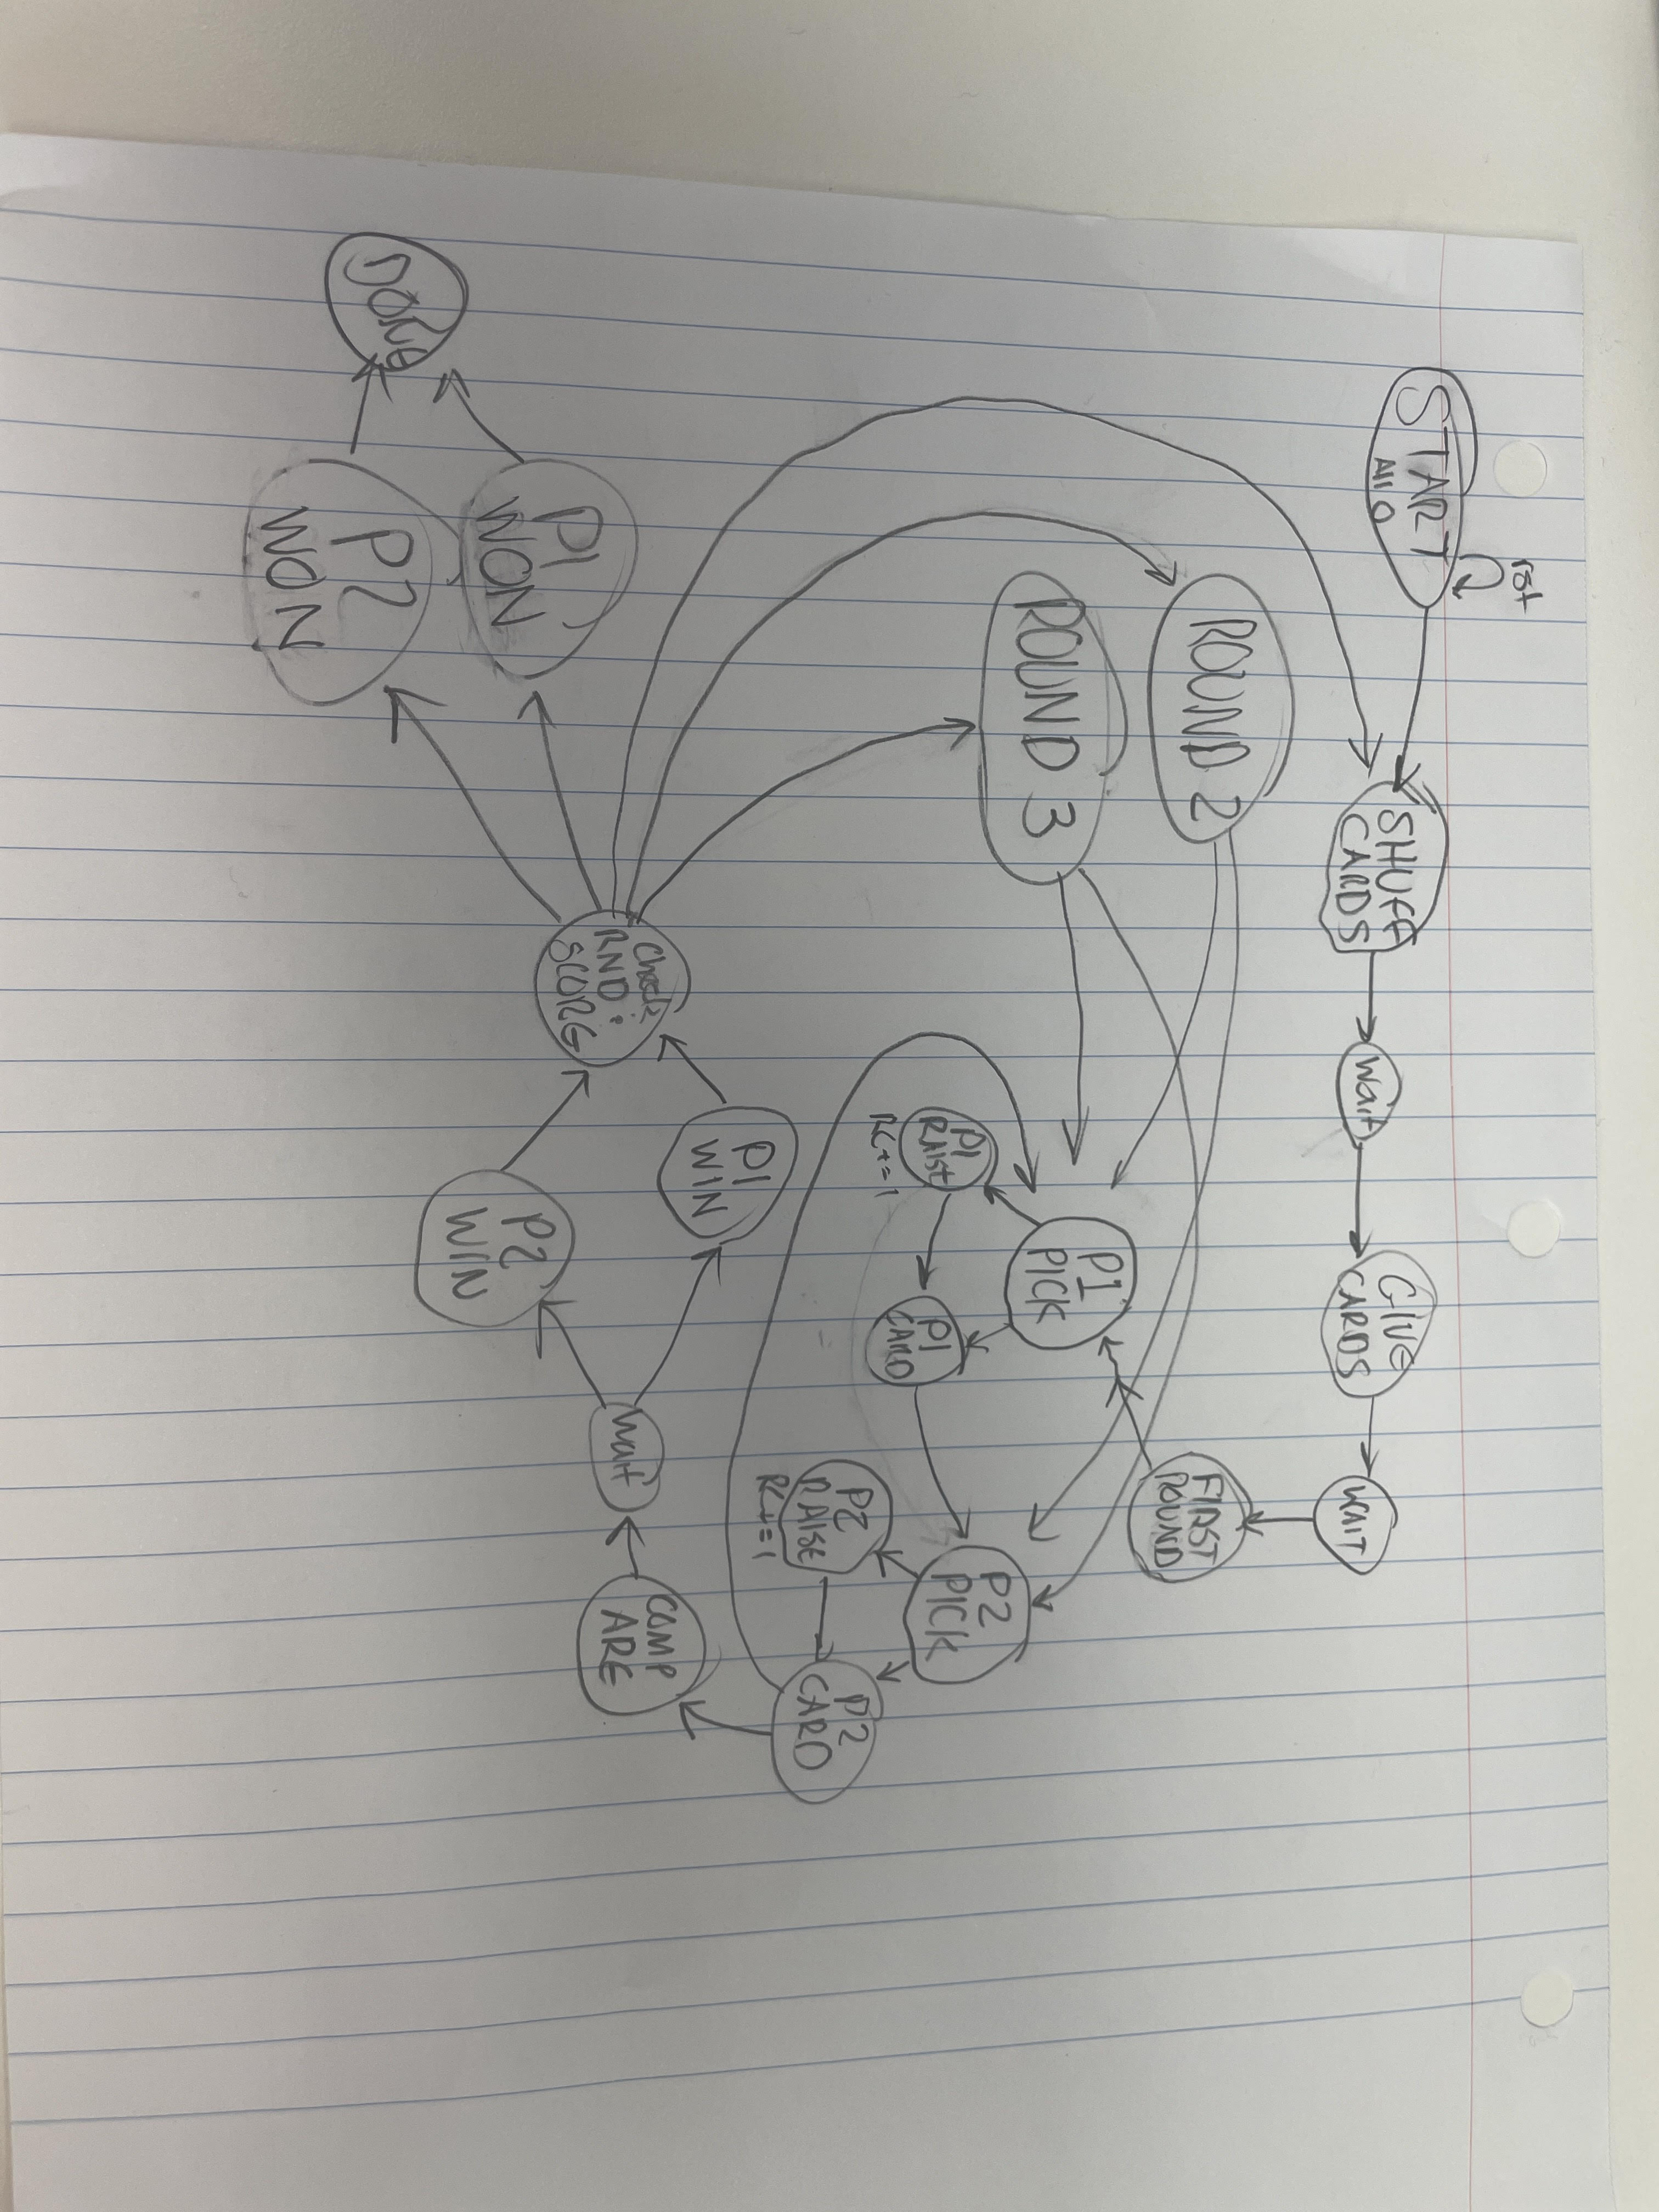 rst
START
All 0
SHUFF
CARDS
Wait
GIVE
CARDS
WAIT
FIRST
ROUND
ROUND 2
ROUND 3
P1
PICK
P1
RAISE
RC+=1
P1
CARD
P2
PICK
P2
RAISE
RC+=1
P2
CARD
COMP
ARE
Wait
P1
WIN
P2
WIN
Check
RND:
SCORE
P1
WON
P2
WON
DONE